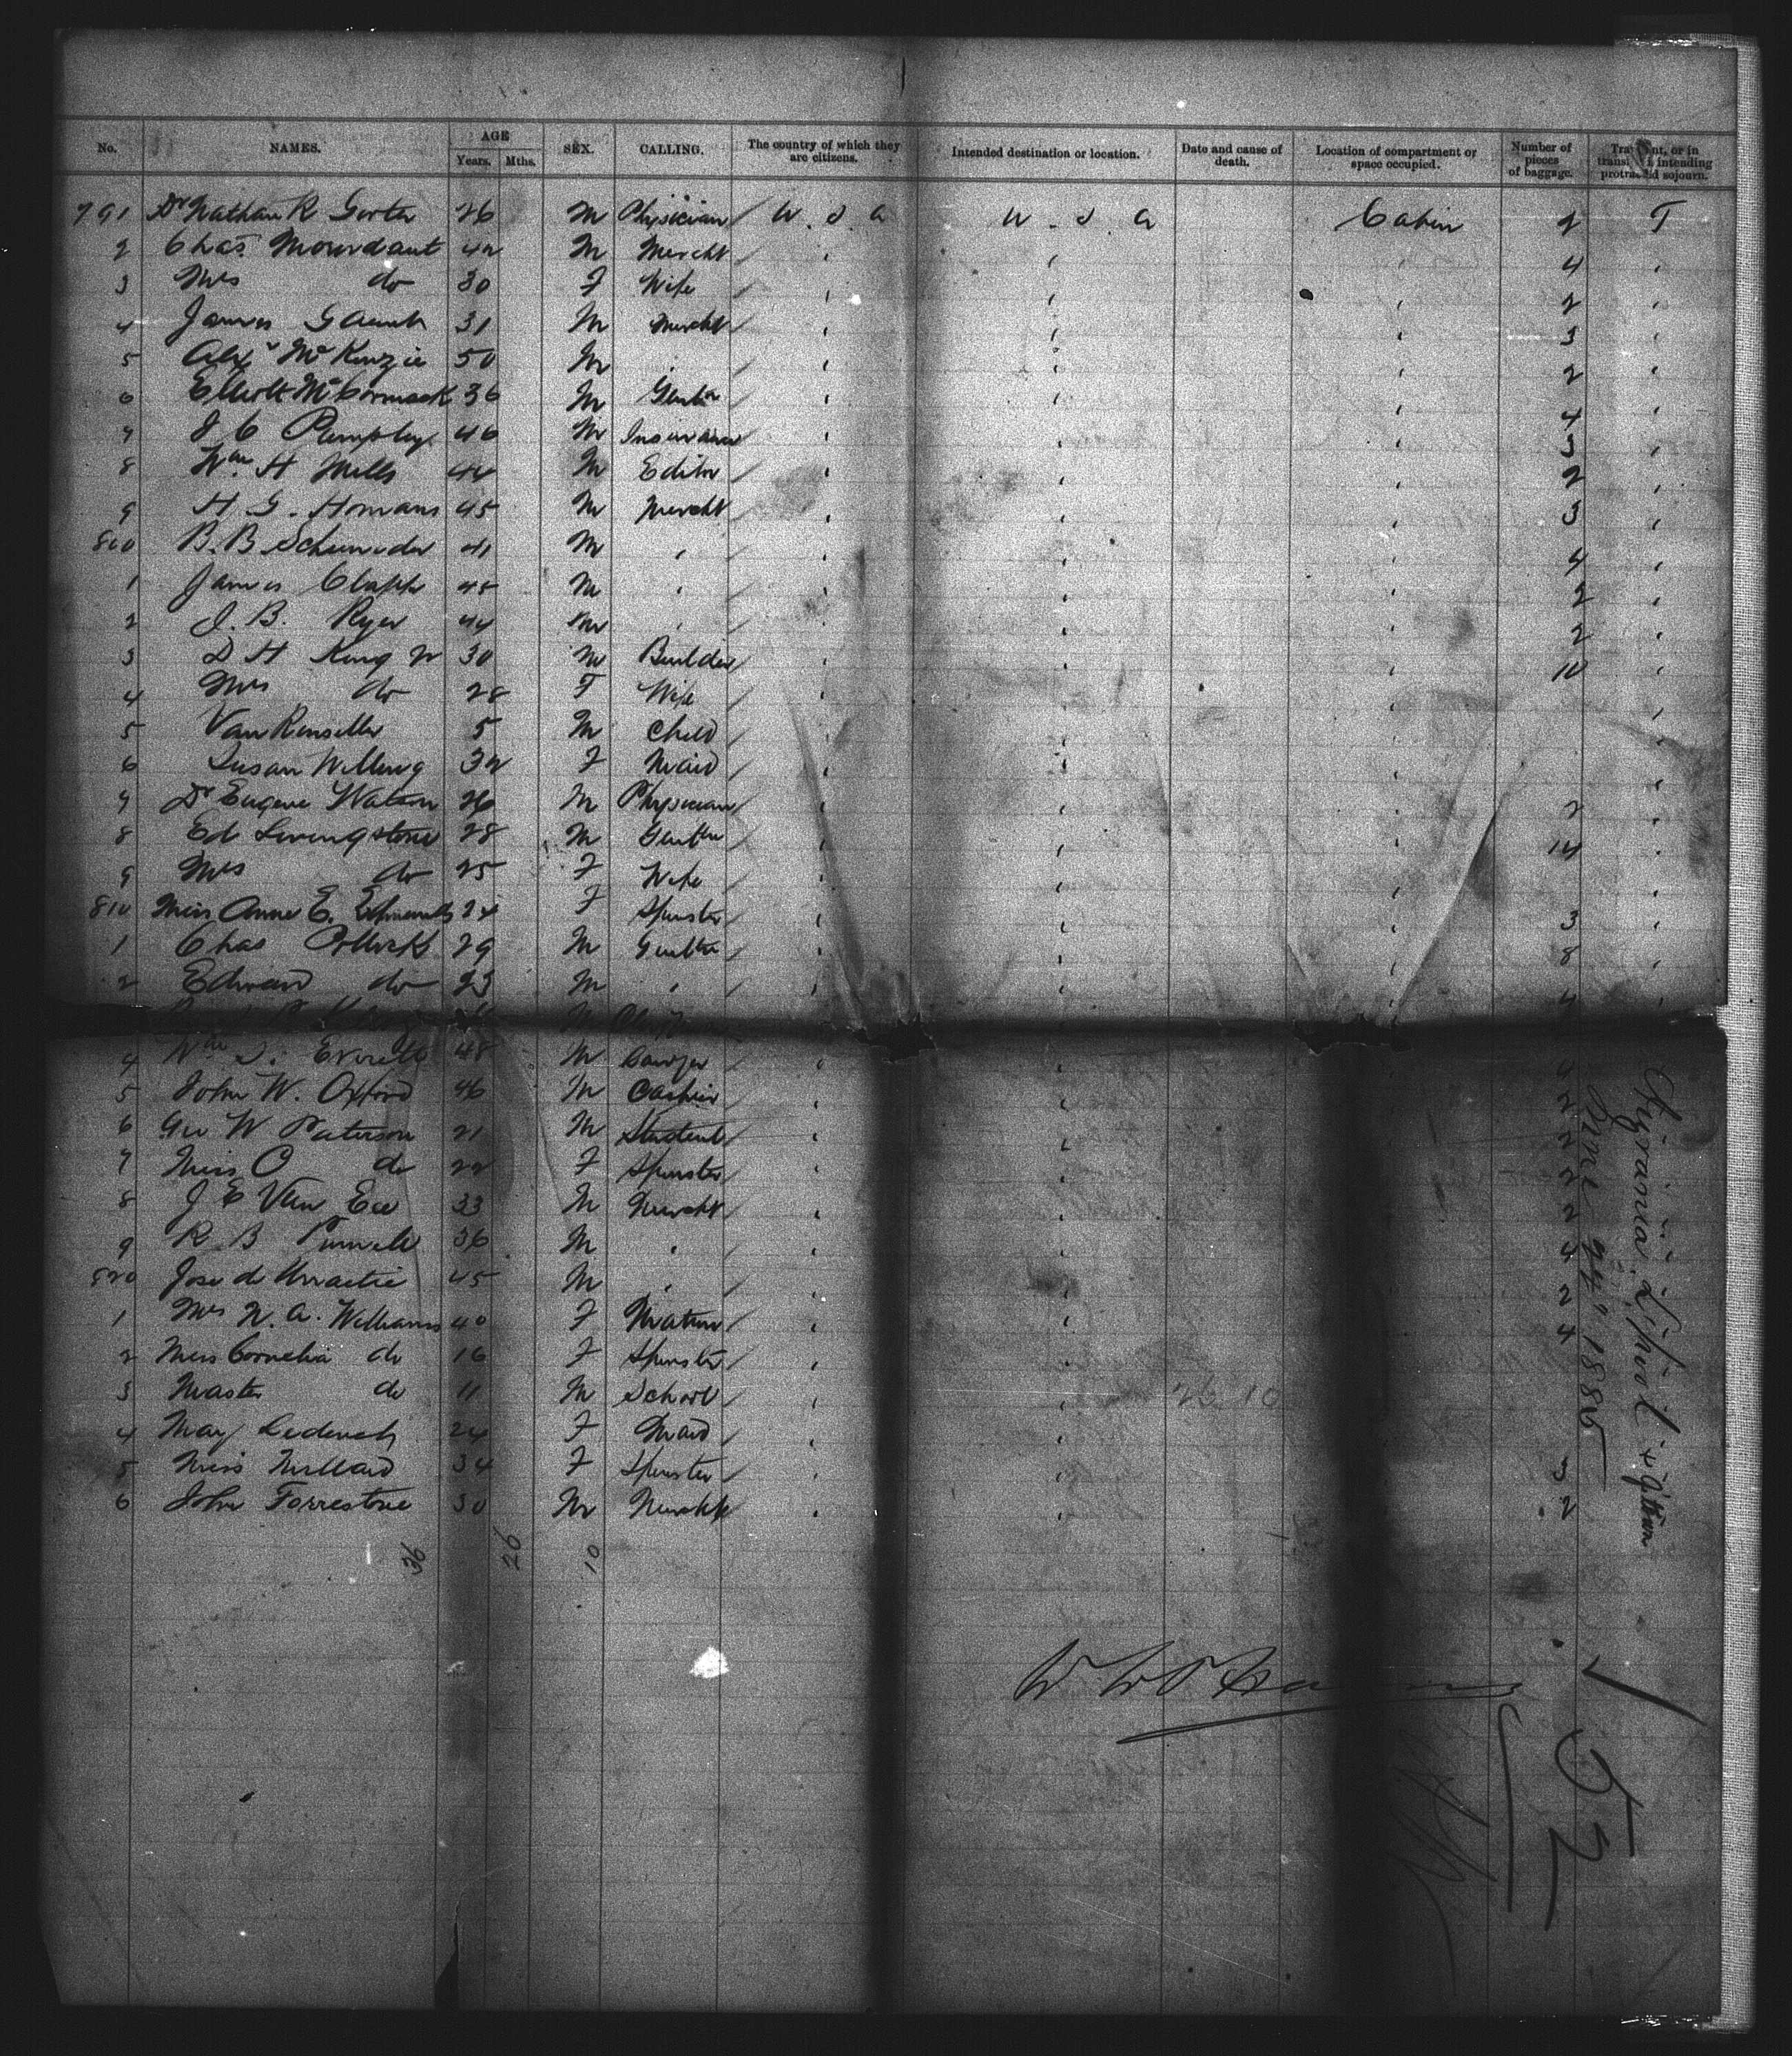 No. NAMES. AGE Years. Mths. SEX. CALLING. The country of which they are citizens. Intended destination or location. Date and cause of death. Location of compartment or space occupied. Number of pieces of baggage. Transient, or in transit intending protracted sojourn.
791 Dr Nathan R Gorter 26 M Physician U.S.A U.S.A Cabin 2 T
2 Chas. Mourdaut 42 M Mercht 4
3 Mrs do 30 F Wife 2
4 James 31 M Mercht 3
5 Alexr McKenzie 50 M 2
6 Elliott McCormack 36 M Gentln 4
7 J C Pumpley 46 M Insurance 3
8 Wm H Mills 44 M Editor 2
9 H G. Homans 45 M Mercht 3
800 B. B Schumider 41 M 4
1 James Clapp 45 M 2
2 J. B. Ryer 44 M 2
3 D H King Jr 30 M Builder 10
4 Mrs do 28 F Wife
5 Van Renseller 5 M Child
6 Susan Willing 32 F Maid
7 Dr Eugene Watson 26 M Physician 2
8 Ed Livingstone 28 M Gentln 14
9 Mrs do 25 F Wife
810 Miss Anne E. Edmunds 24 F Spinster 3
1 Chas Pollock 29 M Gentln 8
2 Edward do 23 M 4
M
4 Wm S. Everett 48 M Lawyer 4
5 John W. Oxford 46 M Cashier 2
6 Geo W Paterson 21 M Student 2
7 Miss C do 22 F Spinster 2
8 J E Van Ee 33 M Mercht 2
9 R B Purnell 36 M 4
820 Jose de 45 M 2
1 Mrs N. A. Williams 40 F Matron 4
2 Miss Cornelia do 16 F Spinster
3 Master do 11 M School
4 Mary 24 F Maid
5 Miss Millard 34 F Spinster 3
6 John Forrestone 30 M Mercht 2
36 26 10
26 10
52